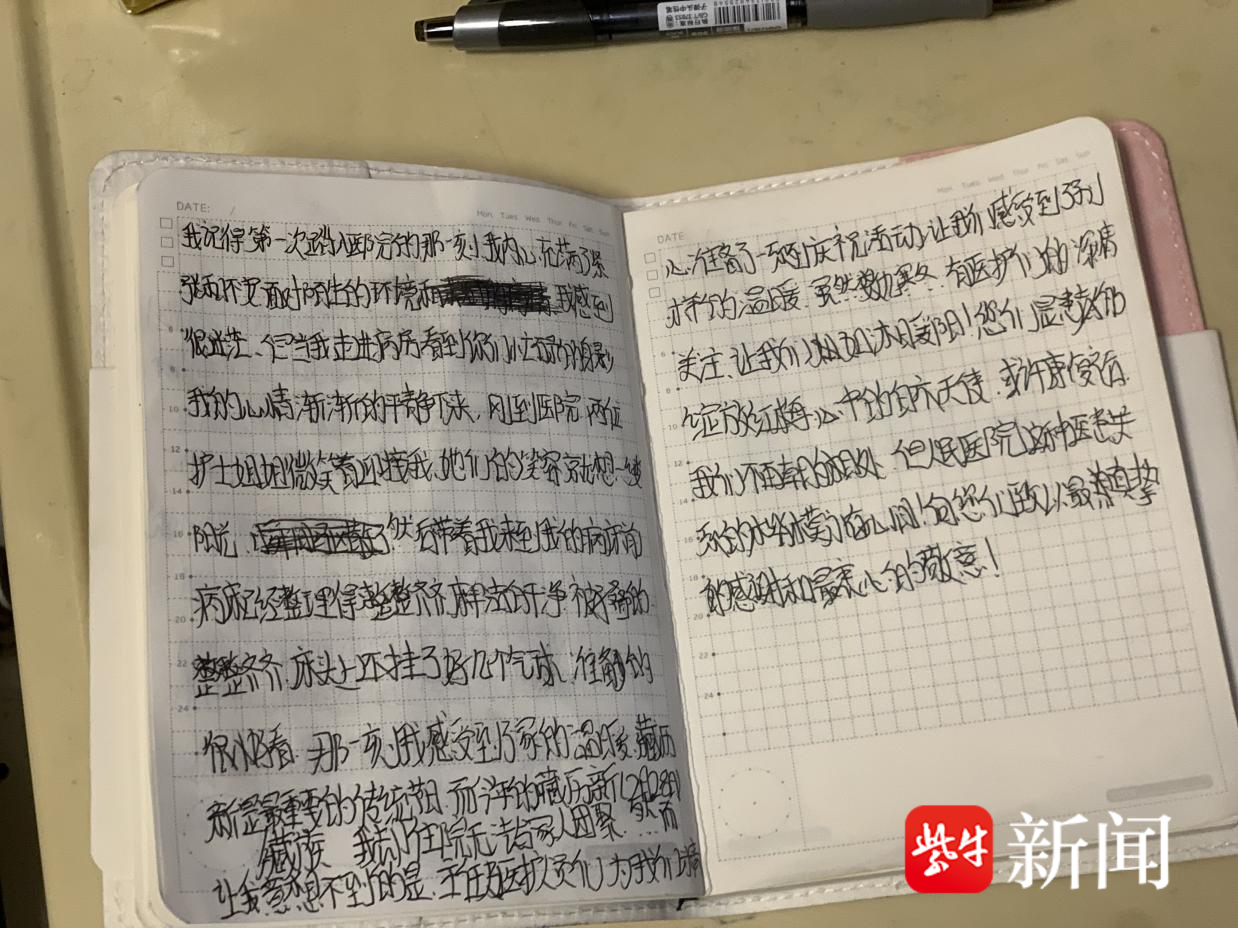 DATE: /
Mon Tues Wed Thur Fri Sat Sun
我记得第一次踏入医院的那一刻,我内心充满了紧
张和不安面对陌生的环境和 我感到
很迷茫、但当我走进病房看到你们忙碌的身影
我的心情渐渐的平静下来,刚到医院,两位
护士姐姐微笑着迎接我,她们的笑容就想一束
阳光, 然后带着我来到我的病床前
病床已经整理得整整齐齐,床单洁白干净,被子叠的
整整齐齐,床头上还挂了好几个气球,准备的
很好看,那一刻,我感受到了家的温暖,藏历
新年是最重要的传统节日,而今年的藏历新年(2月28日)
我却在住院无法与家人团聚
让我意想不到的是,主任及医护人员们为我们精
DATE:
Mon Tues Wed Thur Fri Sat Sun
心准备了一场庆祝活动,让我们感受到了别
样的温暖,虽然寒冬,有医护们的深情
关注,让我们如沐暖阳!您们是
绽放红梅,心中的白衣天使,或许康复后
我们不再有相处,但人民医院
向您们致以最真挚
的感谢和最衷心的敬意!
紫牛新闻